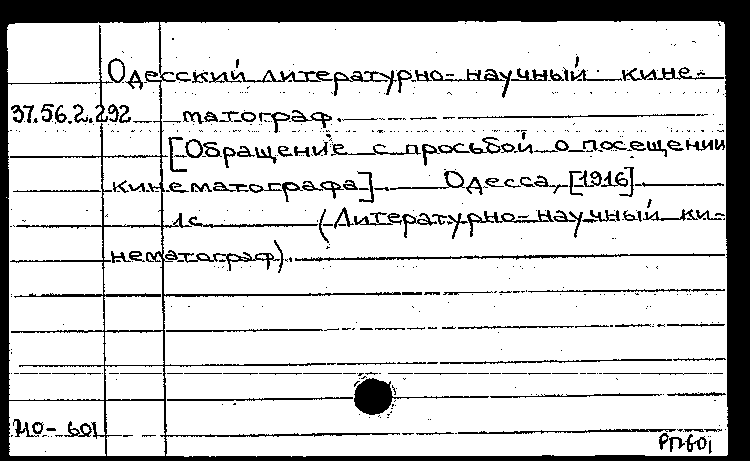 Одесский литературно-научный кине-
37.56.2.292 матограф.
[Обращение с просьбой о посещении
кинематографа]. Одесса, [1916].
1с. (Литературно-научный ки-
нематограф).
МО-601
РП601